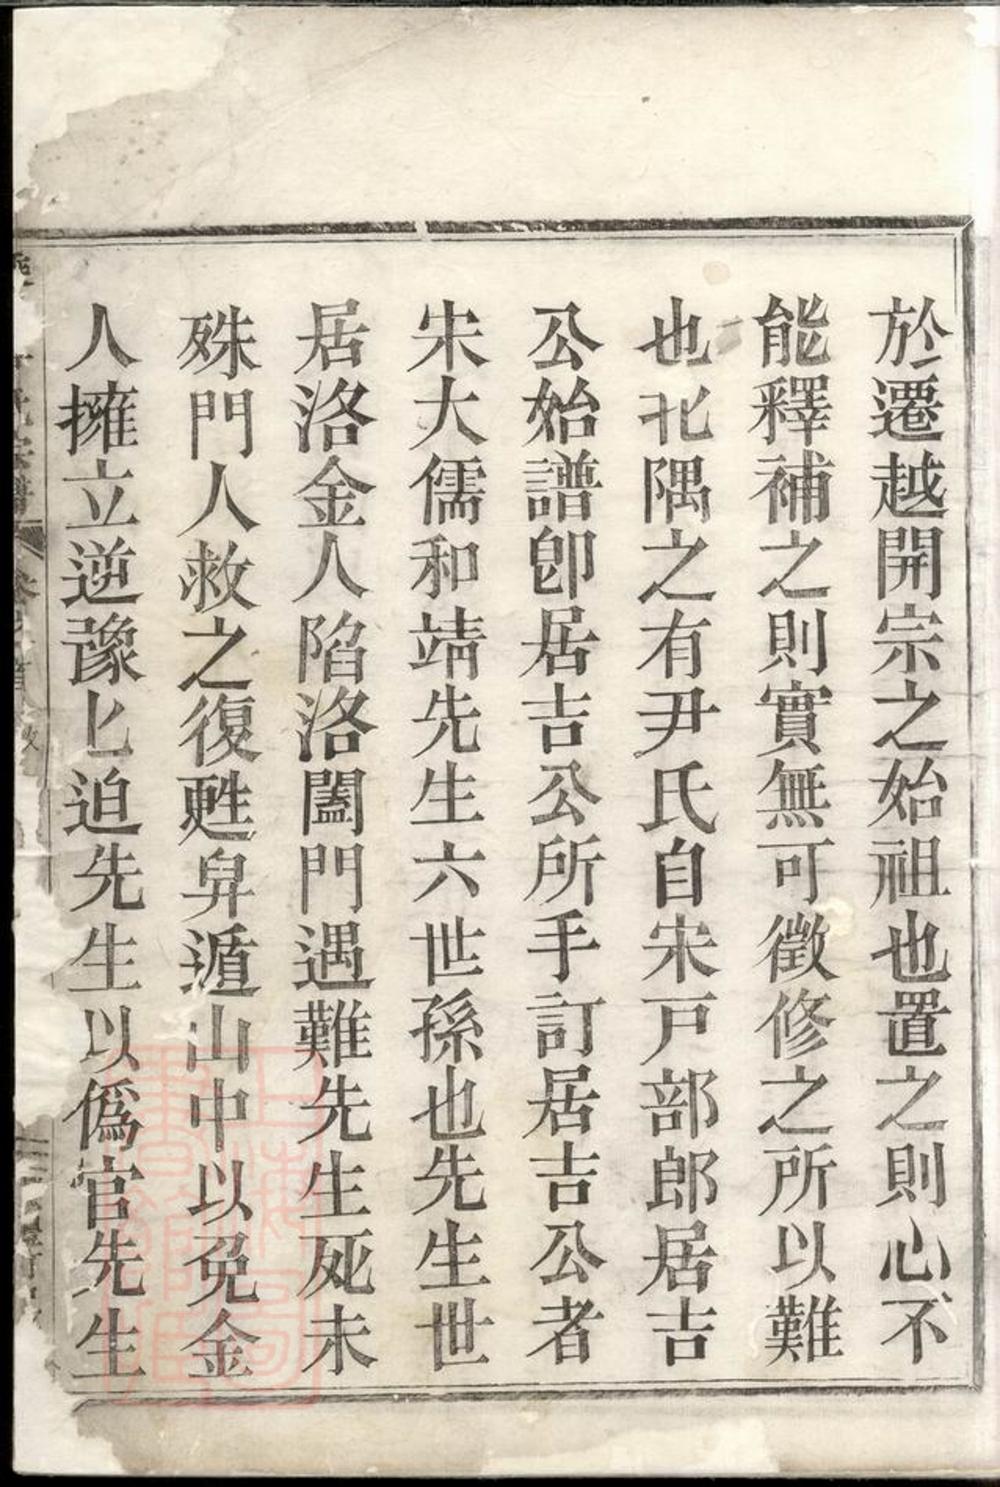 於遷越開宗之始祖也置之則心不
能釋補之則實無可徵修之所以難
也北隅之有尹氏自宋戸部郎居吉
公始譜卽居吉公所手訂居吉公者
宋大儒和靖先生六世孫也先生世
居洛金人陷洛闔門遇難先生死未
殊門人救之復甦舁遁山中以免金
人擁立逆豫匕迫先生以僞官先生